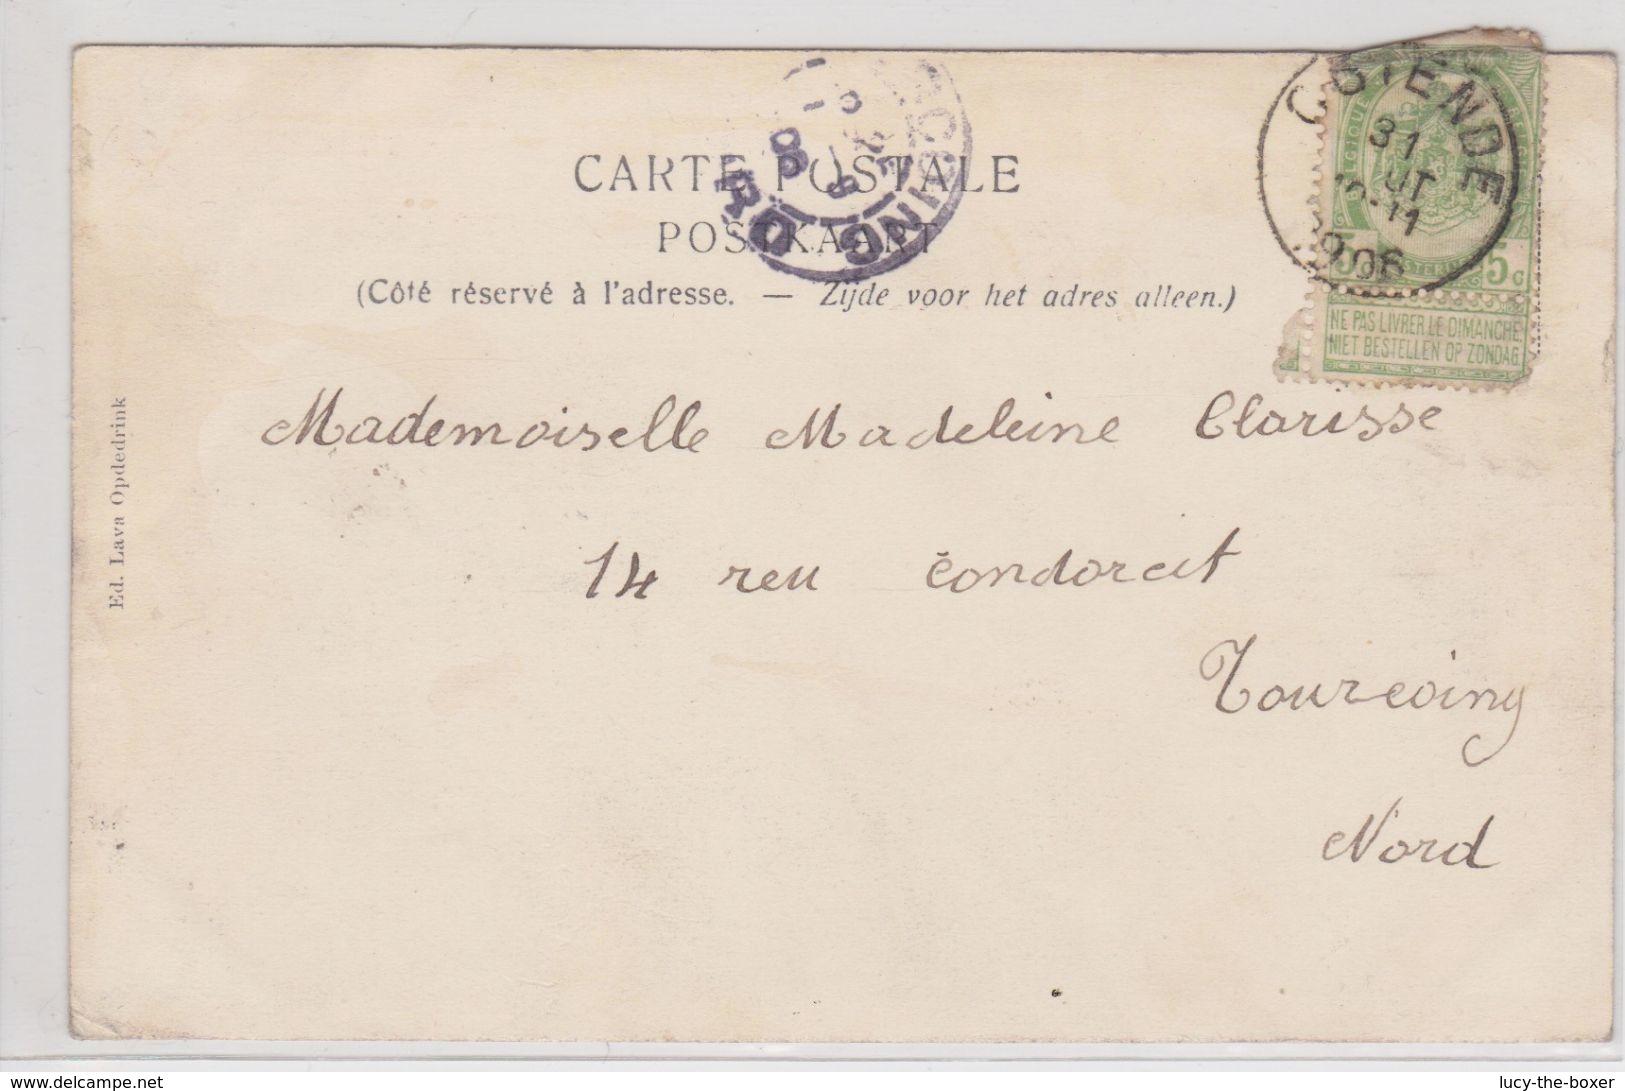 CARTE POSTALE
POSTKAART
(Côté réservé à l'adresse. — Zijde voor het adres alleen.)
OSTENDE
31
10-11
1906
BELGIQUE
5 5c
NE PAS LIVRER LE DIMANCHE
NIET BESTELLEN OP ZONDAG
Ed. Lava Opdedrink
Mademoiselle Madeleine Clarisse
14 reu Condorcet
Tourcoing
Nord
delcampe.net
lucy-the-boxer